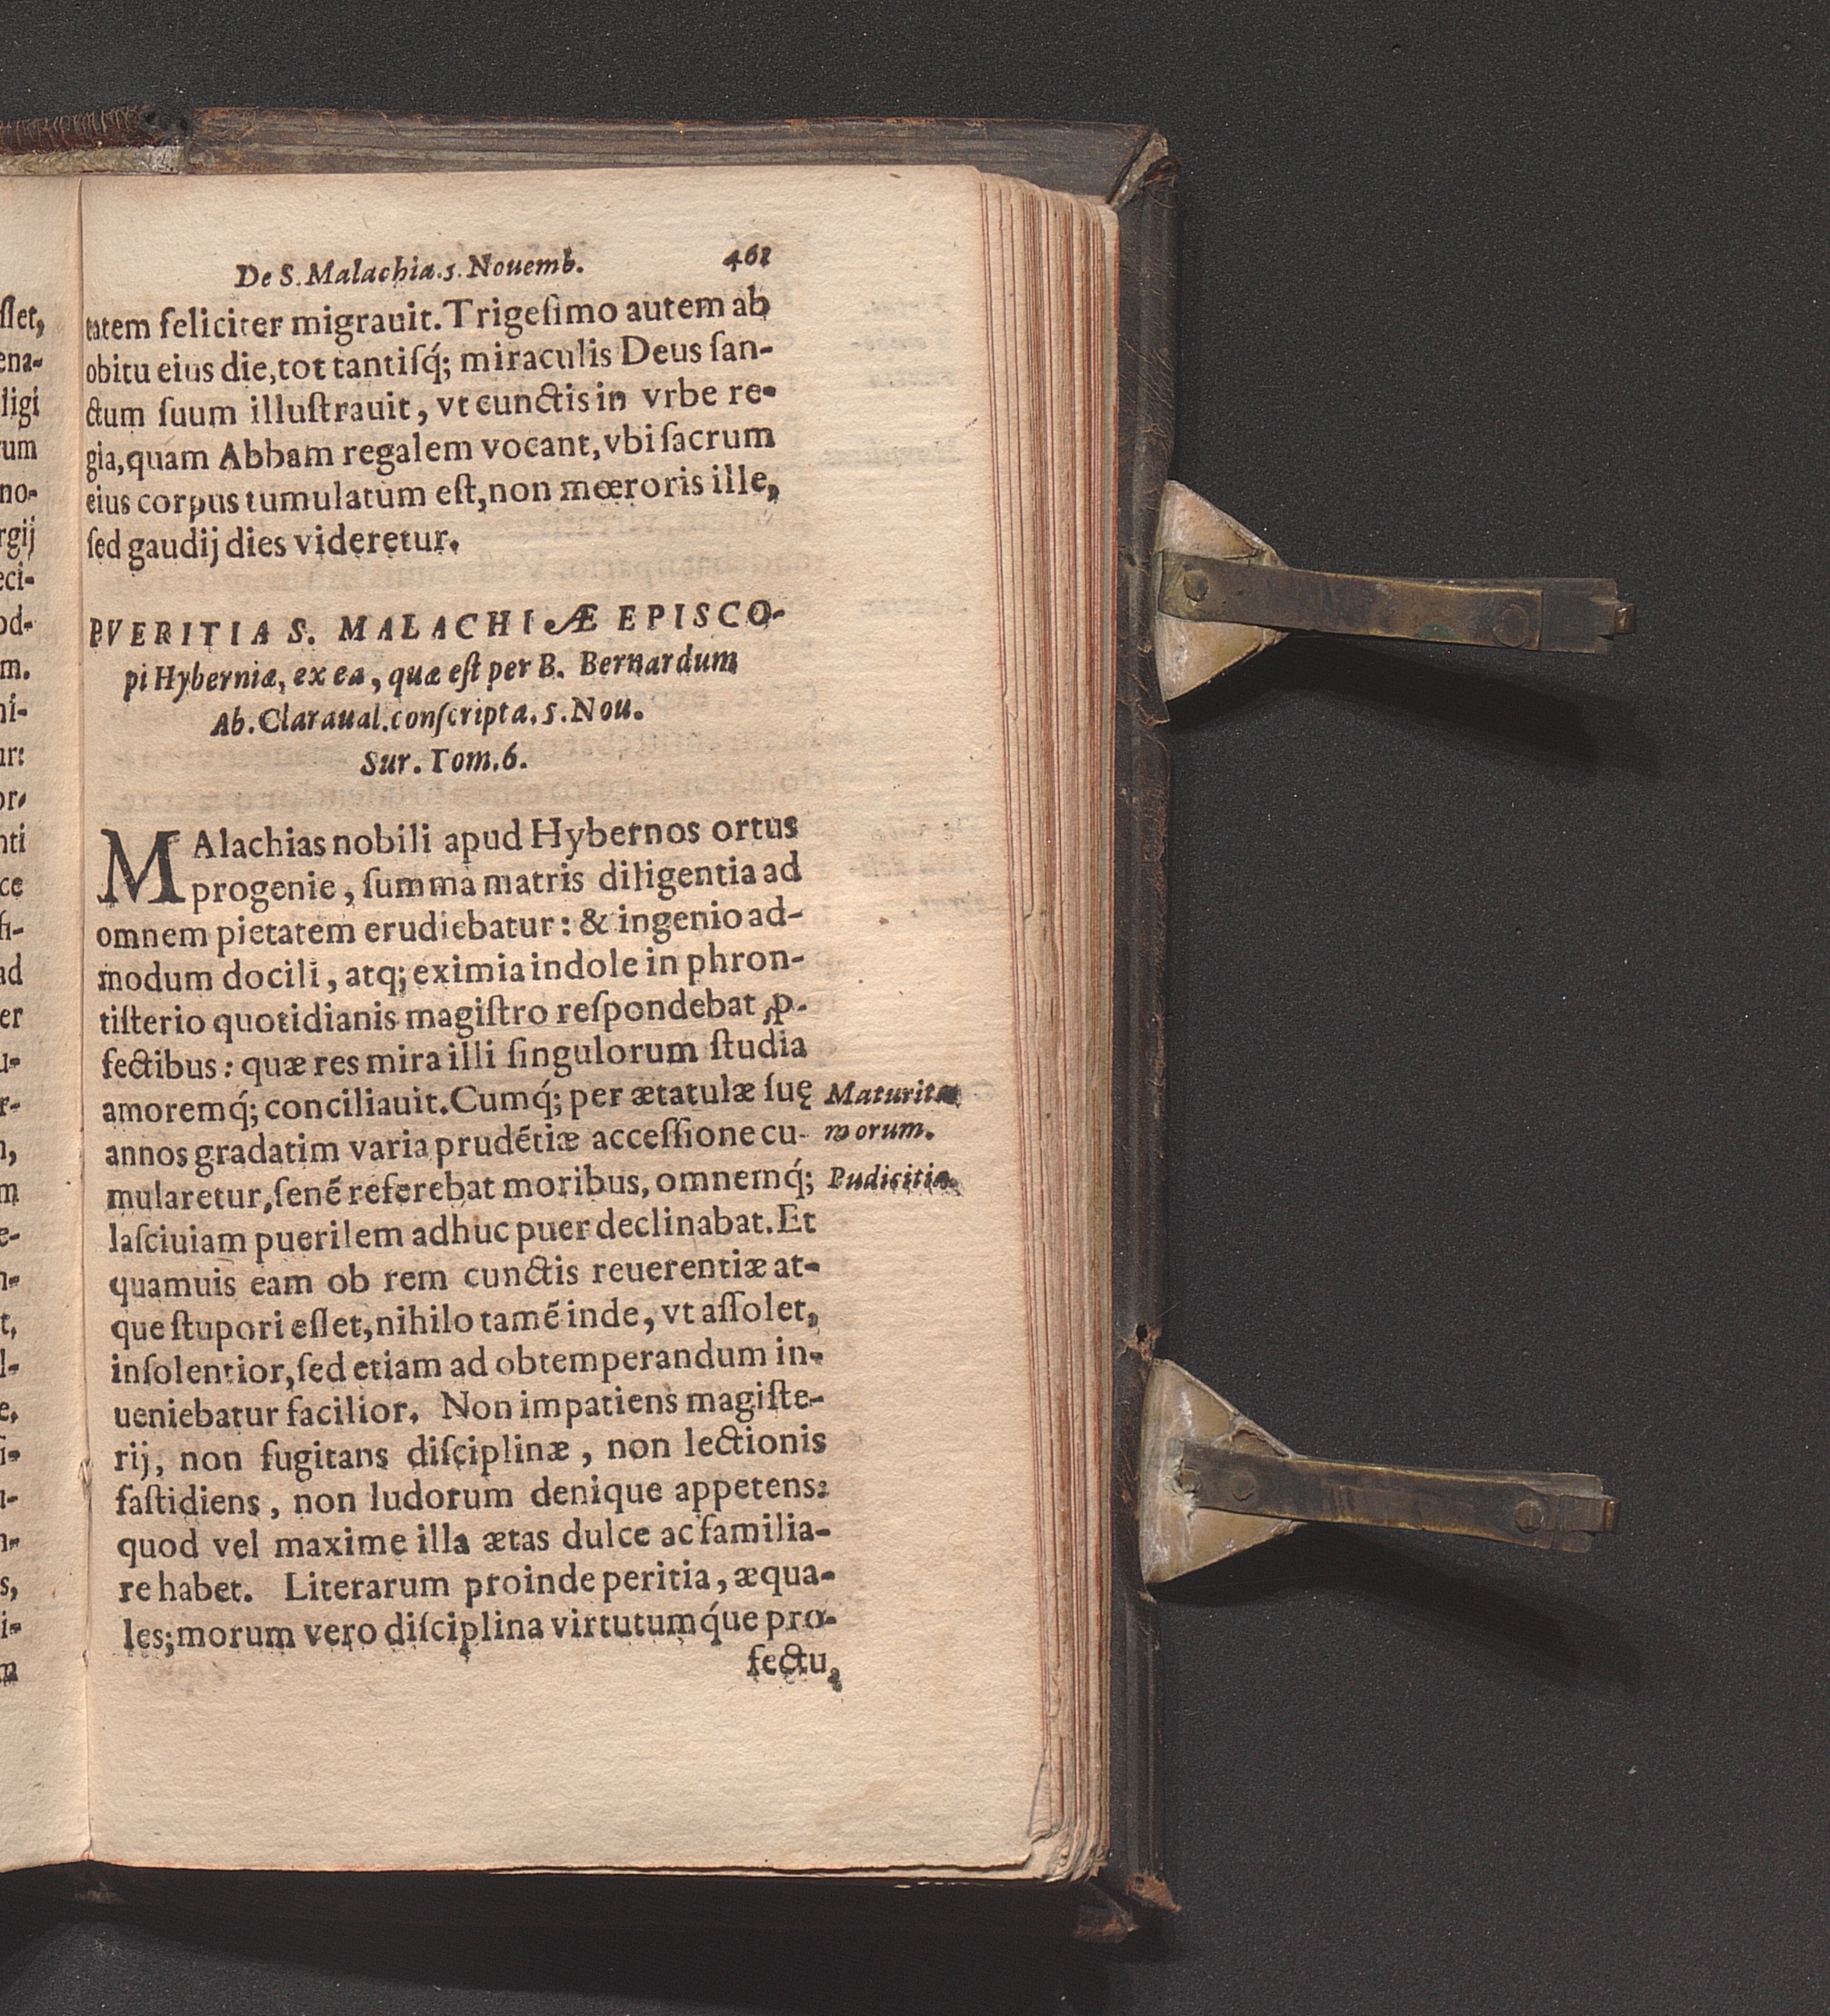 De S. Malachia. 5. Nouemb. 461
tatem feliciter migrauit. Trigeſimo autem ab
obitu eius die, tot tantiſq́; miraculis Deus ſan-
ctum ſuum illuſtrauit, vt cunctis in vrbe re-
gia, quam Abbam regalem vocant, vbi ſacrum
eius corpus tumulatum eſt, non mœroris ille,
ſed gaudij dies videretur.
PVERITIA S. MALACHIÆ EPISCO-
pi Hyberniæ, ex ea, quæ eſt per B. Bernardum
Ab. Claraual. conſcripta. 5. Nou.
Sur. Tom. 6.
MAlachias nobili apud Hybernos ortus
progenie, ſumma matris diligentia ad
omnem pietatem erudiebatur: & ingenio ad-
modum docili, atq; eximia indole in phron-
tiſterio quotidianis magiſtro reſpondebat ꝓ-
fectibus: quæ res mira illi ſingulorum ſtudia
amoremq́; conciliauit. Cumq́; per ætatulæ ſuę Maturitas
annos gradatim varia prudẽtiæ acceſſione cu- morum.
mularetur, ſenẽ referebat moribus, omnemq́; Pudicitia.
laſciuiam puerilem adhuc puer declinabat. Et
quamuis eam ob rem cunctis reuerentiæ at-
que ſtupori eſſet, nihilo tamẽ inde, vt aſſolet,
inſolentior, ſed etiam ad obtemperandum in-
ueniebatur facilior. Non impatiens magiſte-
rij, non fugitans diſciplinæ, non lectionis
faſtidiens, non ludorum denique appetens:
quod vel maxime illa ætas dulce ac familia-
re habet. Literarum proinde peritia, æqua-
les; morum vero diſciplina virtutumq́ue pro-
fectu,
ſſet,
ena-
ligi
rum
no-
rgij
eci-
od-
m.
ni-
or-
nti
ce
ſi-
ad
er
u-
r-
m
e-
n-
t,
l-
e,
s,
i-
m